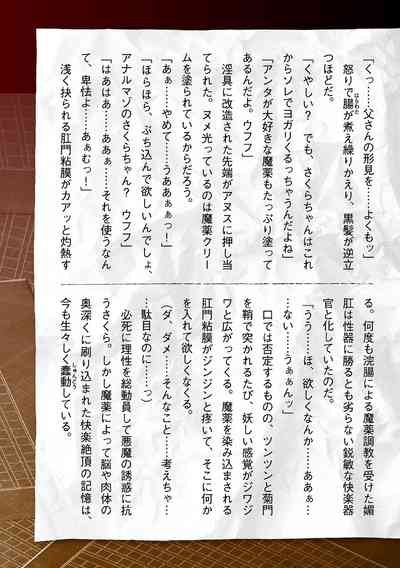 「くっ……父さんの形見を……よくもッ」
怒りで腸が煮え繰りかえり、黒髪が逆立
はらわた
つほどだ。
「くやしい？　でも、さくらちゃんはこれ
からソレでヨガリくるっちゃうんだよね」
「アンタが大好きな魔薬もたっぷり塗って
あるんだよ。ウフフ」
淫具に改造された先端がアヌスに押し当
てられた。ヌメ光っているのは魔薬クリー
ムを塗られているからだろう。
「あぁ……やめて……うああぁぁっ！」
「ほらほら、ぶち込んで欲しいんでしょ、
アナルマゾのさくらちゃん？　ウフフ」
「はあはあ……あぁぁ……それを使うなん
て、卑怯よ……あぁむっ！」
浅く抉られる肛門粘膜がカアッと灼熱す
る。何度も浣腸による魔薬調教を受けた媚
肛は性器に勝るとも劣らない鋭敏な快楽器
官と化していたのだ。
「うう……ほ、欲しくなんか……あぁぁ…
…ない……うぁぁんッ」
口では否定するものの、ツンツンと菊門
を鞘で突かれるたび、妖しい感覚がジワジ
ワと広がってくる。魔薬を染み込まされる
肛門粘膜がジンジンと疼いて、そこに何か
を入れて欲しくなる。
（ダ、ダメ……そんなこと……考えちゃ…
…駄目なのに……っ）
必死に理性を総動員して悪魔の誘惑に抗
うさくら。しかし魔薬によって脳や肉体の
奥深くに刷り込まれた快楽絶頂の記憶は、
今も生々しく蠢動している。
しゅんどう